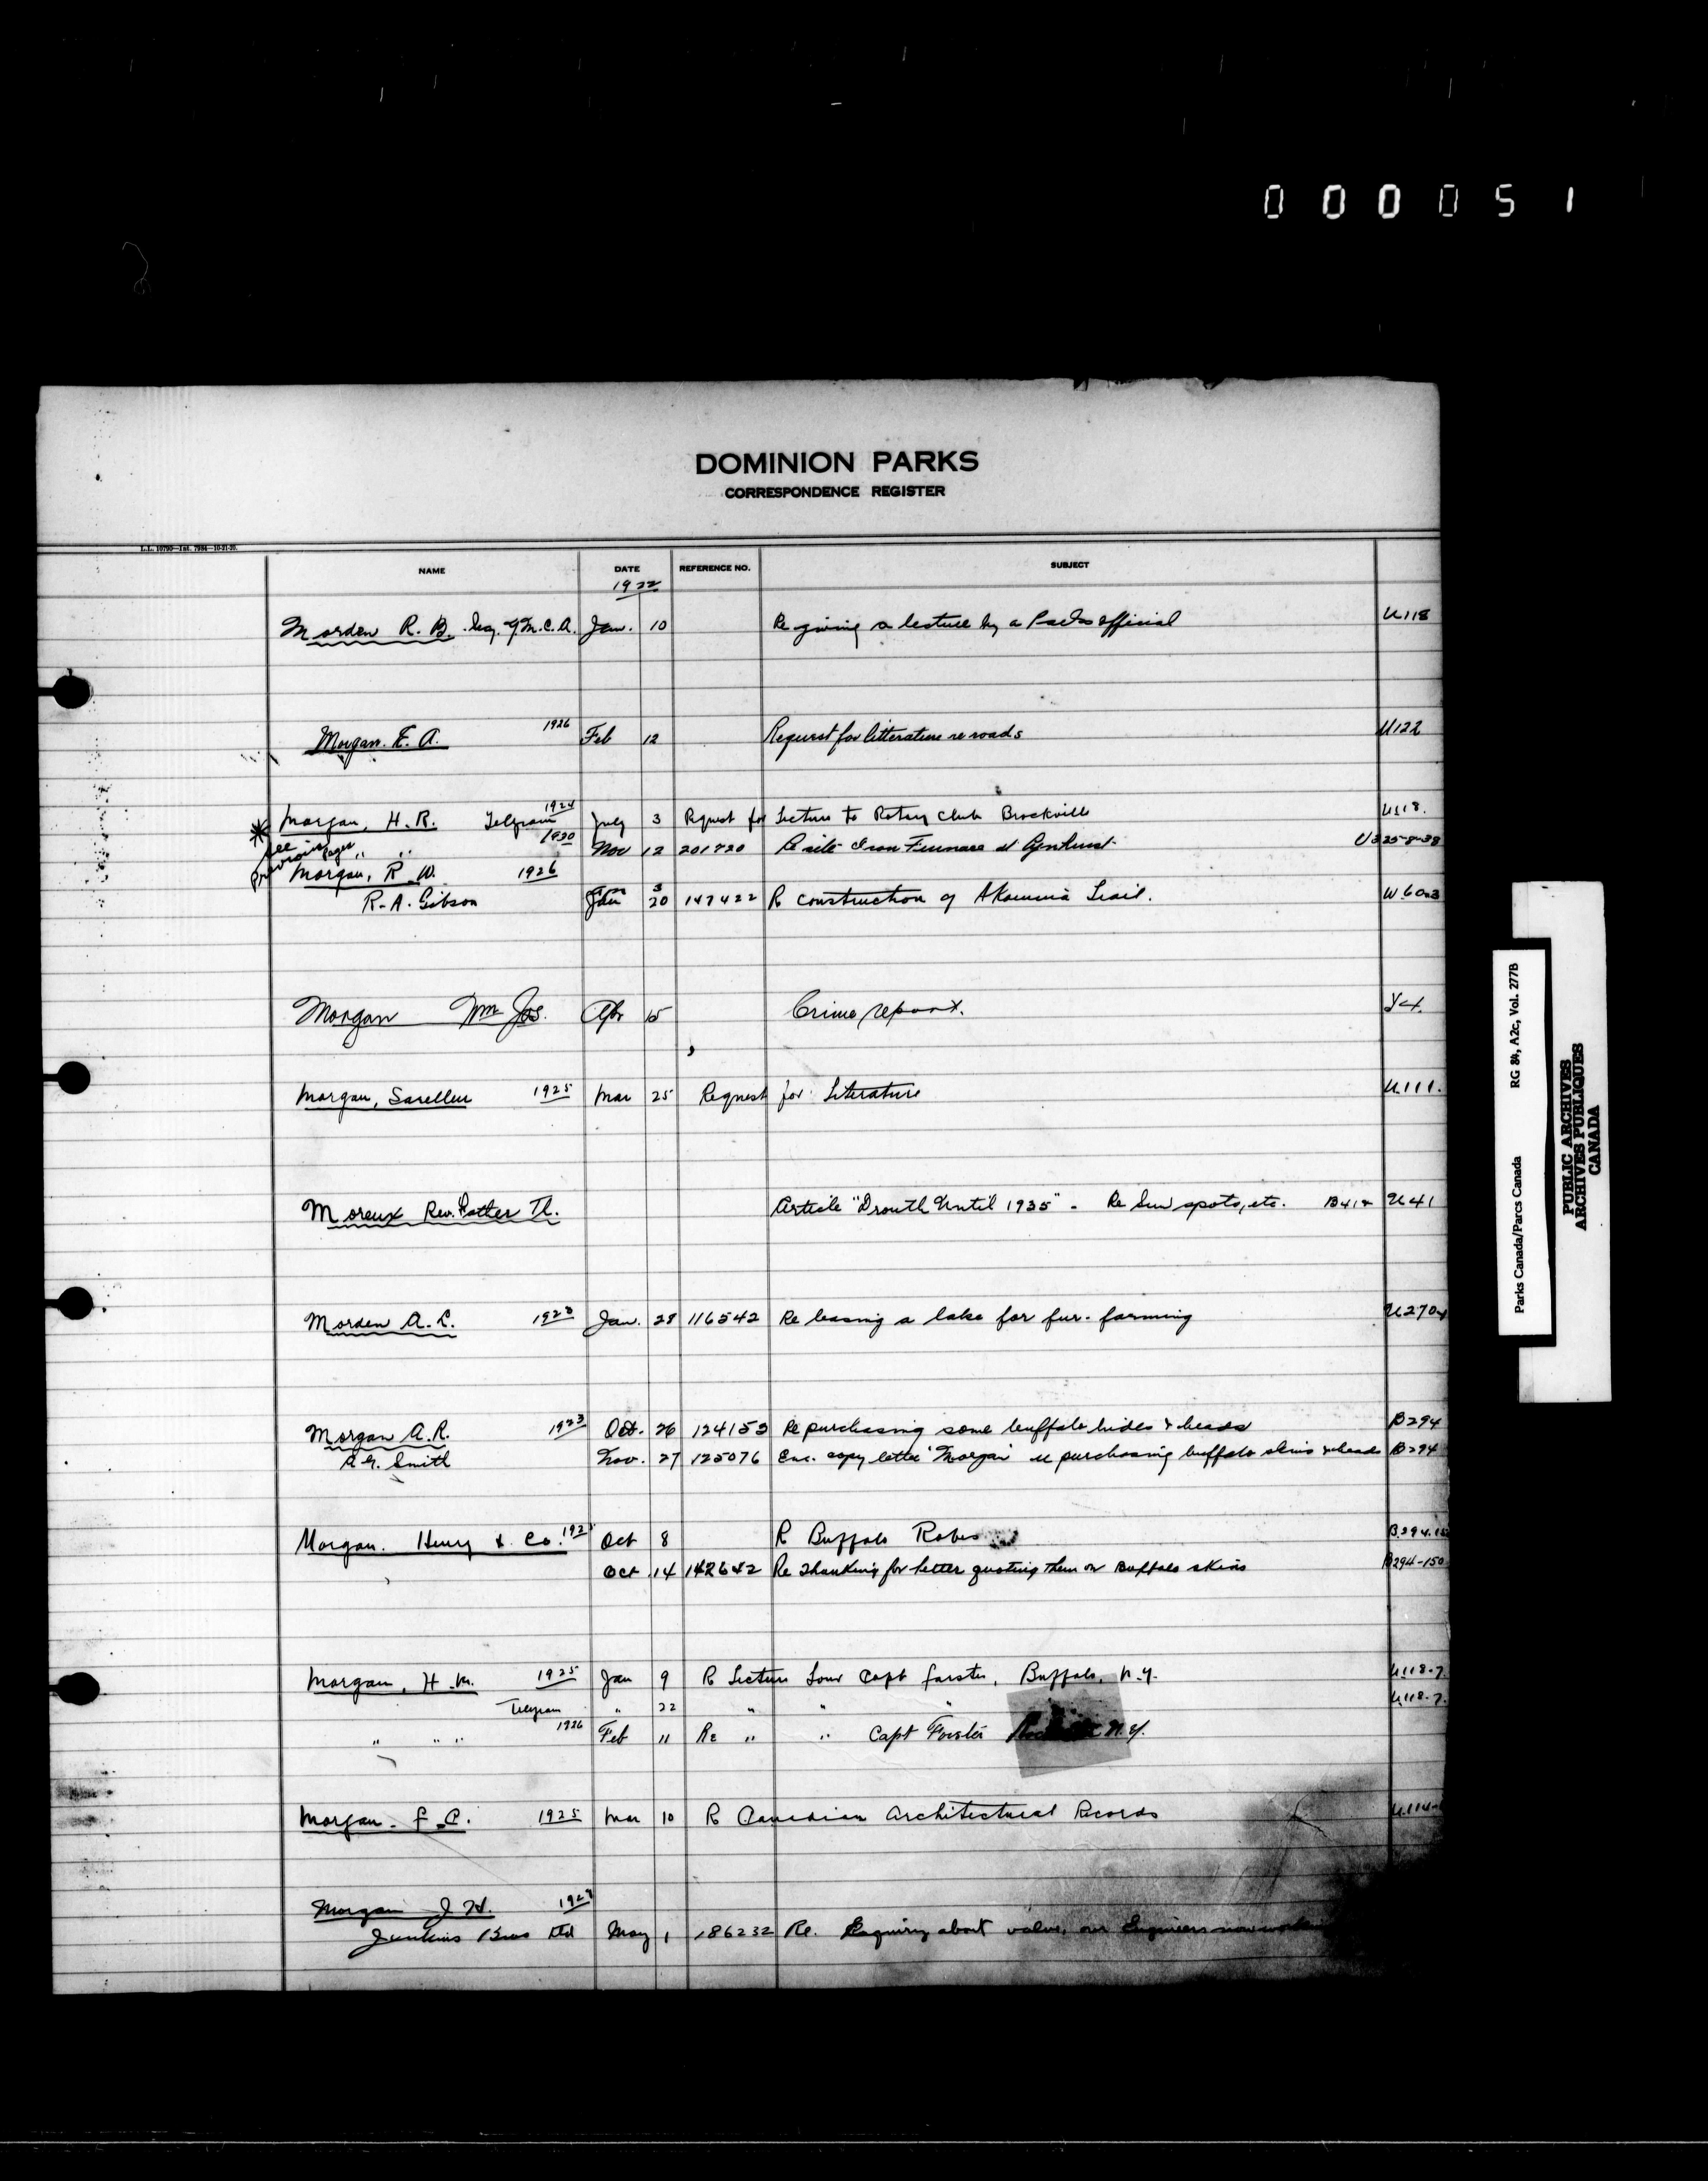 000051
DOMINION PARKS
CORRESPONDENCE REGISTER
L.L. 10790—Int. 7984—10-21-20.
NAME DATE REFERENCE NO. SUBJECT
1922
Morden R. B. Sec. Y.M.C.A. Jan. 10 Re giving a lecture by a Parks official U118
Morgan. E. A. 1926 Feb 12 Request for litterature re roads U122
* Morgan, H. R. Telegram 1924 July 3 Request for Lecture to Rotary Club Brockville U118.
see previous pages " " 1930 Nov 12 201720 Re site Iron Furnace at U325-8-38
Morgan, R. W. 1926
R. A. Gibson Jan 20 147422 R construction of Akamina Trail. W.60-3
Morgan Wm Jos. Apr 15 Crime report. Y4.
Morgan, Sarellen 1925 Mar 25 Request for Literature U.111.
Moreux Rev. Father Th. Article "Drouth Until 1935" - Re Sun spots, etc. B41+ U41
Morden A. C. 1923 Jan. 29 116542 Re leasing a lake for fur-farming U270
Morgan A. R. 1923 Oct. 26 124153 Re purchasing some buffalo hides & heads B294
A. G. Smith Nov. 27 125076 Enc. copy letter "Morgan" re purchasing buffalo skins & heads B294
Morgan. Henry & Co. Oct 8 R Buffalo Robes B.294.
Oct 14 142642 Re Thanking for letter quoting them on Buffalo skins B294-150
Morgan, H. M. 1925 Jan 9 R Lecture Tour Capt Forster, Buffalo, N.Y. U.118-7.
Telegram " 22 " " " U.118-7.
" " " 1926 Feb 11 Re " " Capt Forster N.Y.
Morgan. F. C. 1925 Mar 10 R Canadian Architectural Records U.114-
Morgan J. H.
Junkins Bros Ltd May 1 186232 Re. Enquiry about valve, our Engineers now
Parks Canada/Parcs Canada RG 84, A2c, Vol. 277B
PUBLIC ARCHIVES
ARCHIVES PUBLIQUES
CANADA